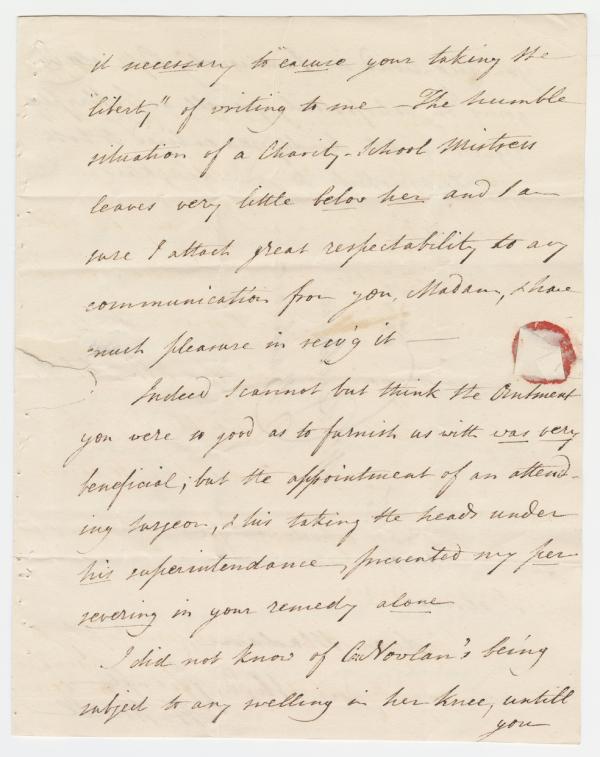 it necessary to "excuse your taking the
liberty" of writing to me – The humble
situation of a Charity-School Mistress
leaves very little below her and I am
sure I attach great respectability to any
communication from you, Madam, & have
much pleasure in recv'g it —
Indeed I cannot but think the Ointment
you were so good as to furnish us with was very
beneficial; but the appointment of an attend-
ing surgeon, & his taking the heads under
his superintendance, prevented my per
severing in your remedy alone
I did not know of C. Novlan's being
subject to any swelling in her knee, untill
you